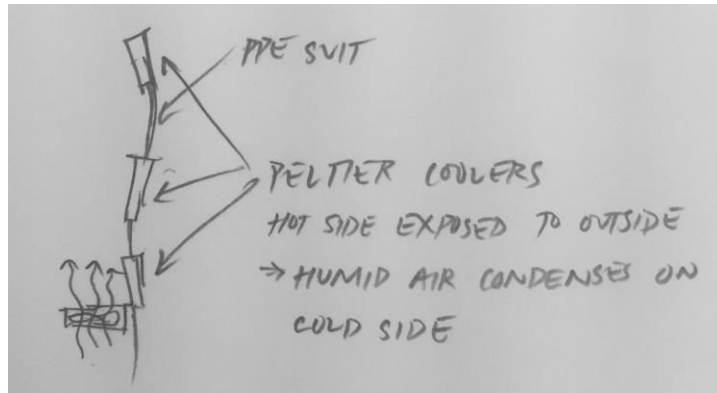 PPE SUIT
PELTIER COOLERS
HOT SIDE EXPOSED TO OUTSIDE
⇒ HUMID AIR CONDENSES ON
COLD SIDE